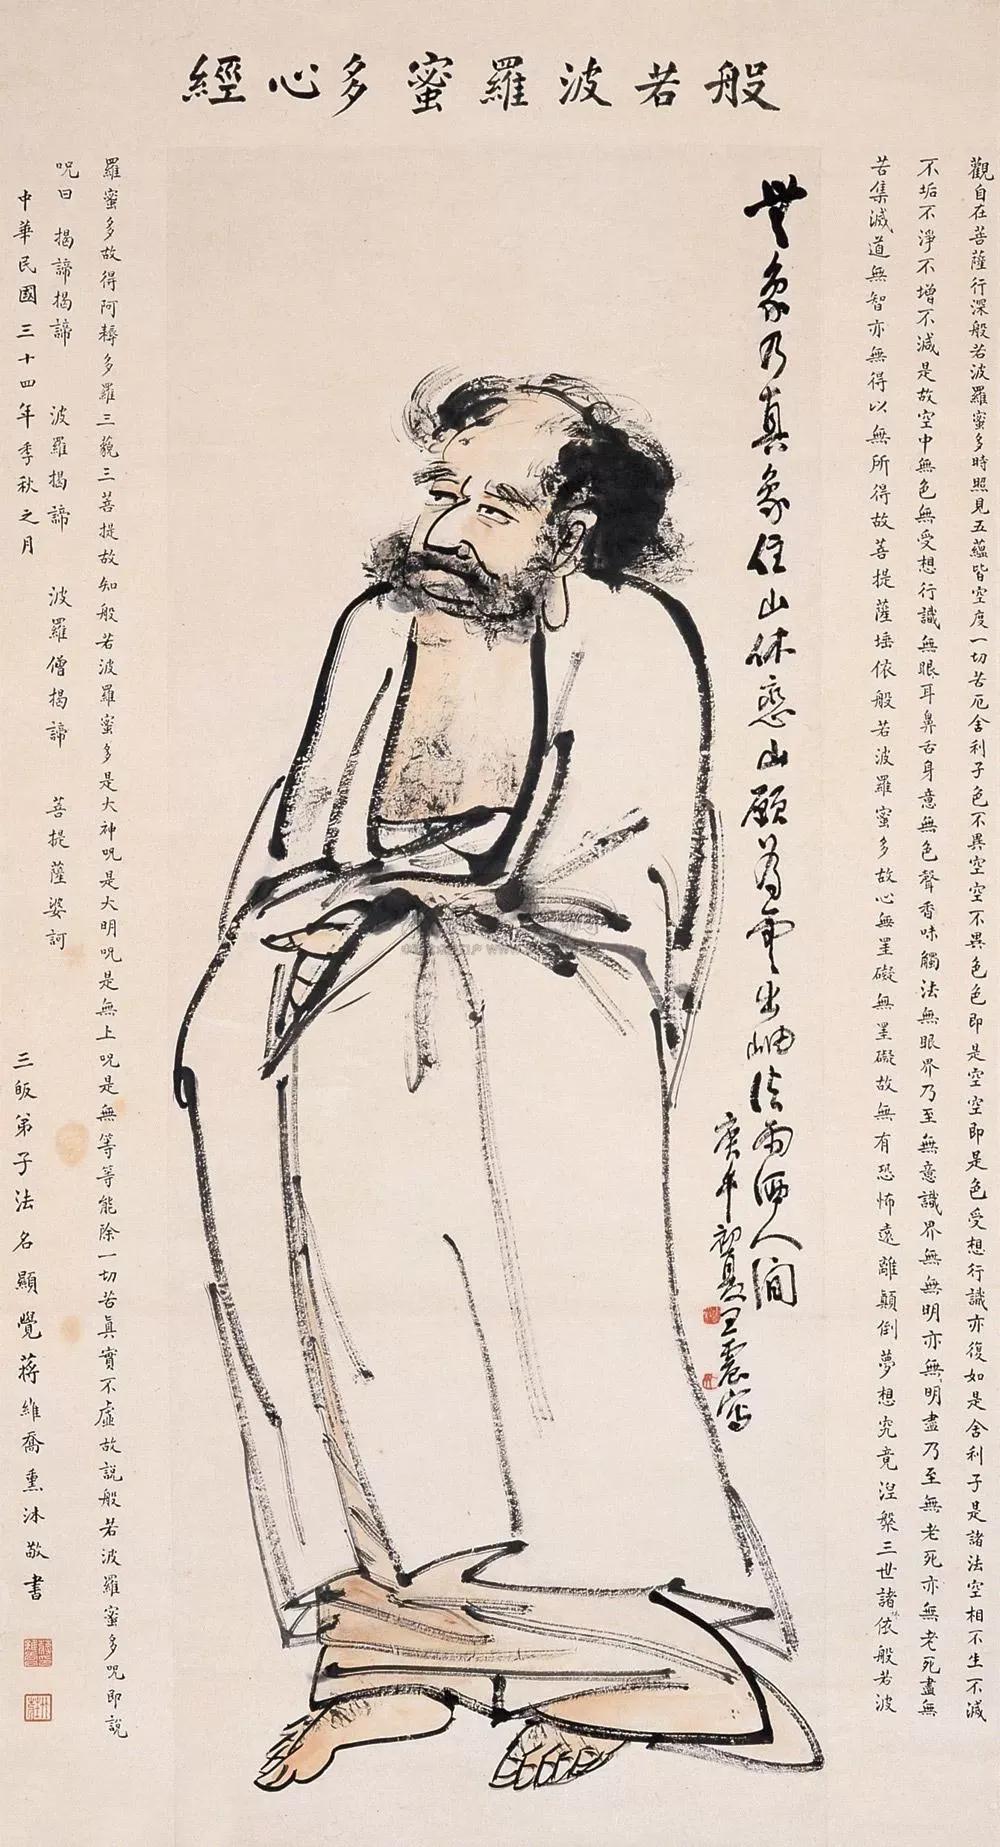 般若波羅蜜多心經
觀自在菩薩行深般若波羅蜜多時照見五蘊皆空度一切苦厄舍利子色不異空空不異色色即是空空即是色受想行識亦復如是舍利子是諸法空相不生不滅
不垢不淨不增不減是故空中無色無受想行識無眼耳鼻舌身意無色聲香味觸法無眼界乃至無意識界無無明亦無明盡乃至無老死亦無老死盡無
苦集滅道無智亦無得以無所得故菩提薩埵依般若波羅蜜多故心無罣礙無罣礙故無有恐怖遠離顛倒夢想究竟涅槃三世諸依般若波
無象乃真象住山休戀山願為雲出岫法雨洒人間
庚午初夏王震寫
羅蜜多故得阿耨多羅三藐三菩提故知般若波羅蜜多是大神咒是大明咒是無上咒是無等等能除一切苦眞實不虛故說般若波羅蜜多咒即說
咒曰 揭諦揭諦 波羅揭諦 波羅僧揭諦 菩提薩婆訶
中華民國三十四年季秋之月 三皈弟子法名顯覺蔣維喬熏沐敬書